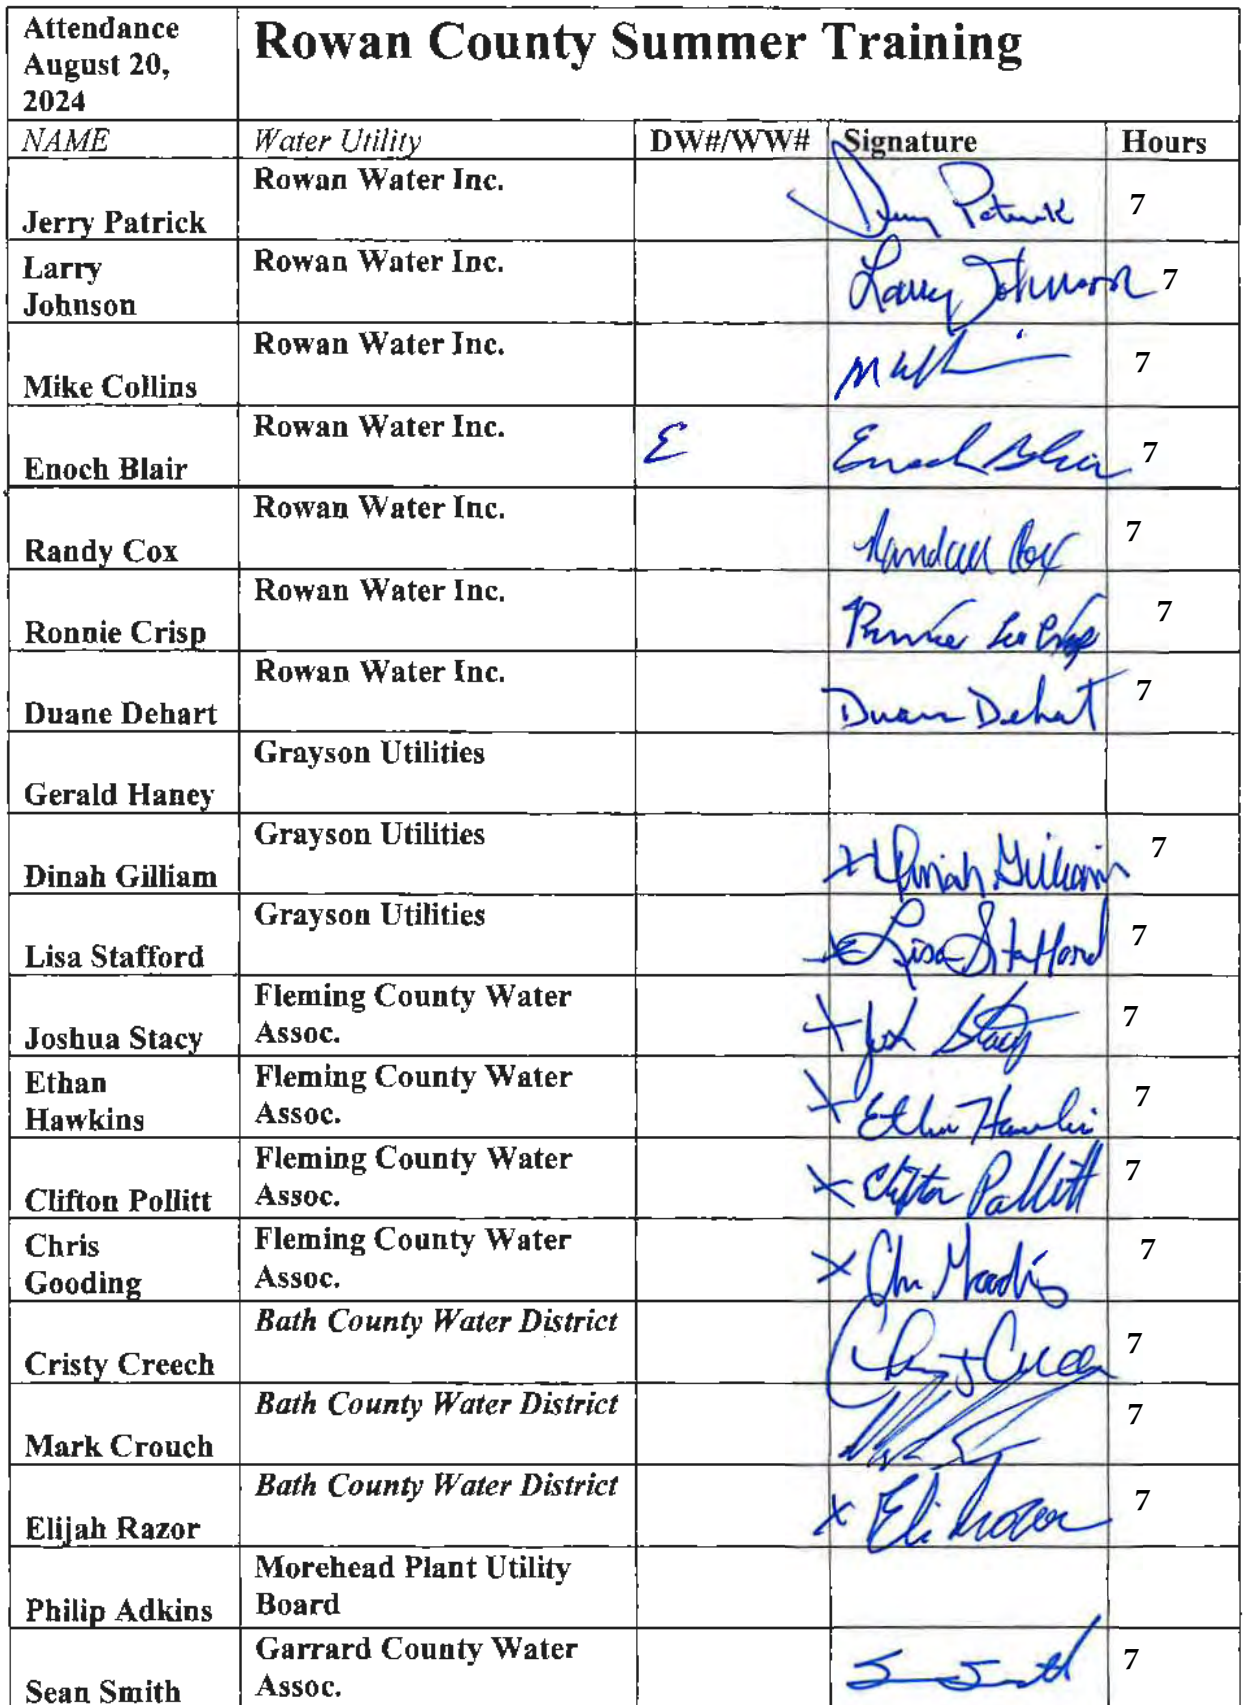 Attendance
August 20,
2024
Rowan County Summer Training
NAME Water Utility DW#/WW# Signature Hours
Jerry Patrick Rowan Water Inc. Jerry Patrick 7
Larry
Johnson Rowan Water Inc. Larry Johnson 7
Mike Collins Rowan Water Inc. 7
Enoch Blair Rowan Water Inc. E Enoch Blair 7
Randy Cox Rowan Water Inc. Randall Cox 7
Ronnie Crisp Rowan Water Inc. Ronnie Lee Crisp 7
Duane Dehart Rowan Water Inc. Duane Dehart 7
Gerald Haney Grayson Utilities
Dinah Gilliam Grayson Utilities x Dinah Gilliam 7
Lisa Stafford Grayson Utilities x Lisa Stafford 7
Joshua Stacy Fleming County Water
Assoc. x Josh Stacy 7
Ethan
Hawkins Fleming County Water
Assoc. x Ethan Hawkins 7
Clifton Pollitt Fleming County Water
Assoc. x Clifton Pollitt 7
Chris
Gooding Fleming County Water
Assoc. x Chris Gooding 7
Cristy Creech Bath County Water District Cristy Creech 7
Mark Crouch Bath County Water District 7
Elijah Razor Bath County Water District x Eli Razor 7
Philip Adkins Morehead Plant Utility
Board
Sean Smith Garrard County Water
Assoc. Sean Smith 7